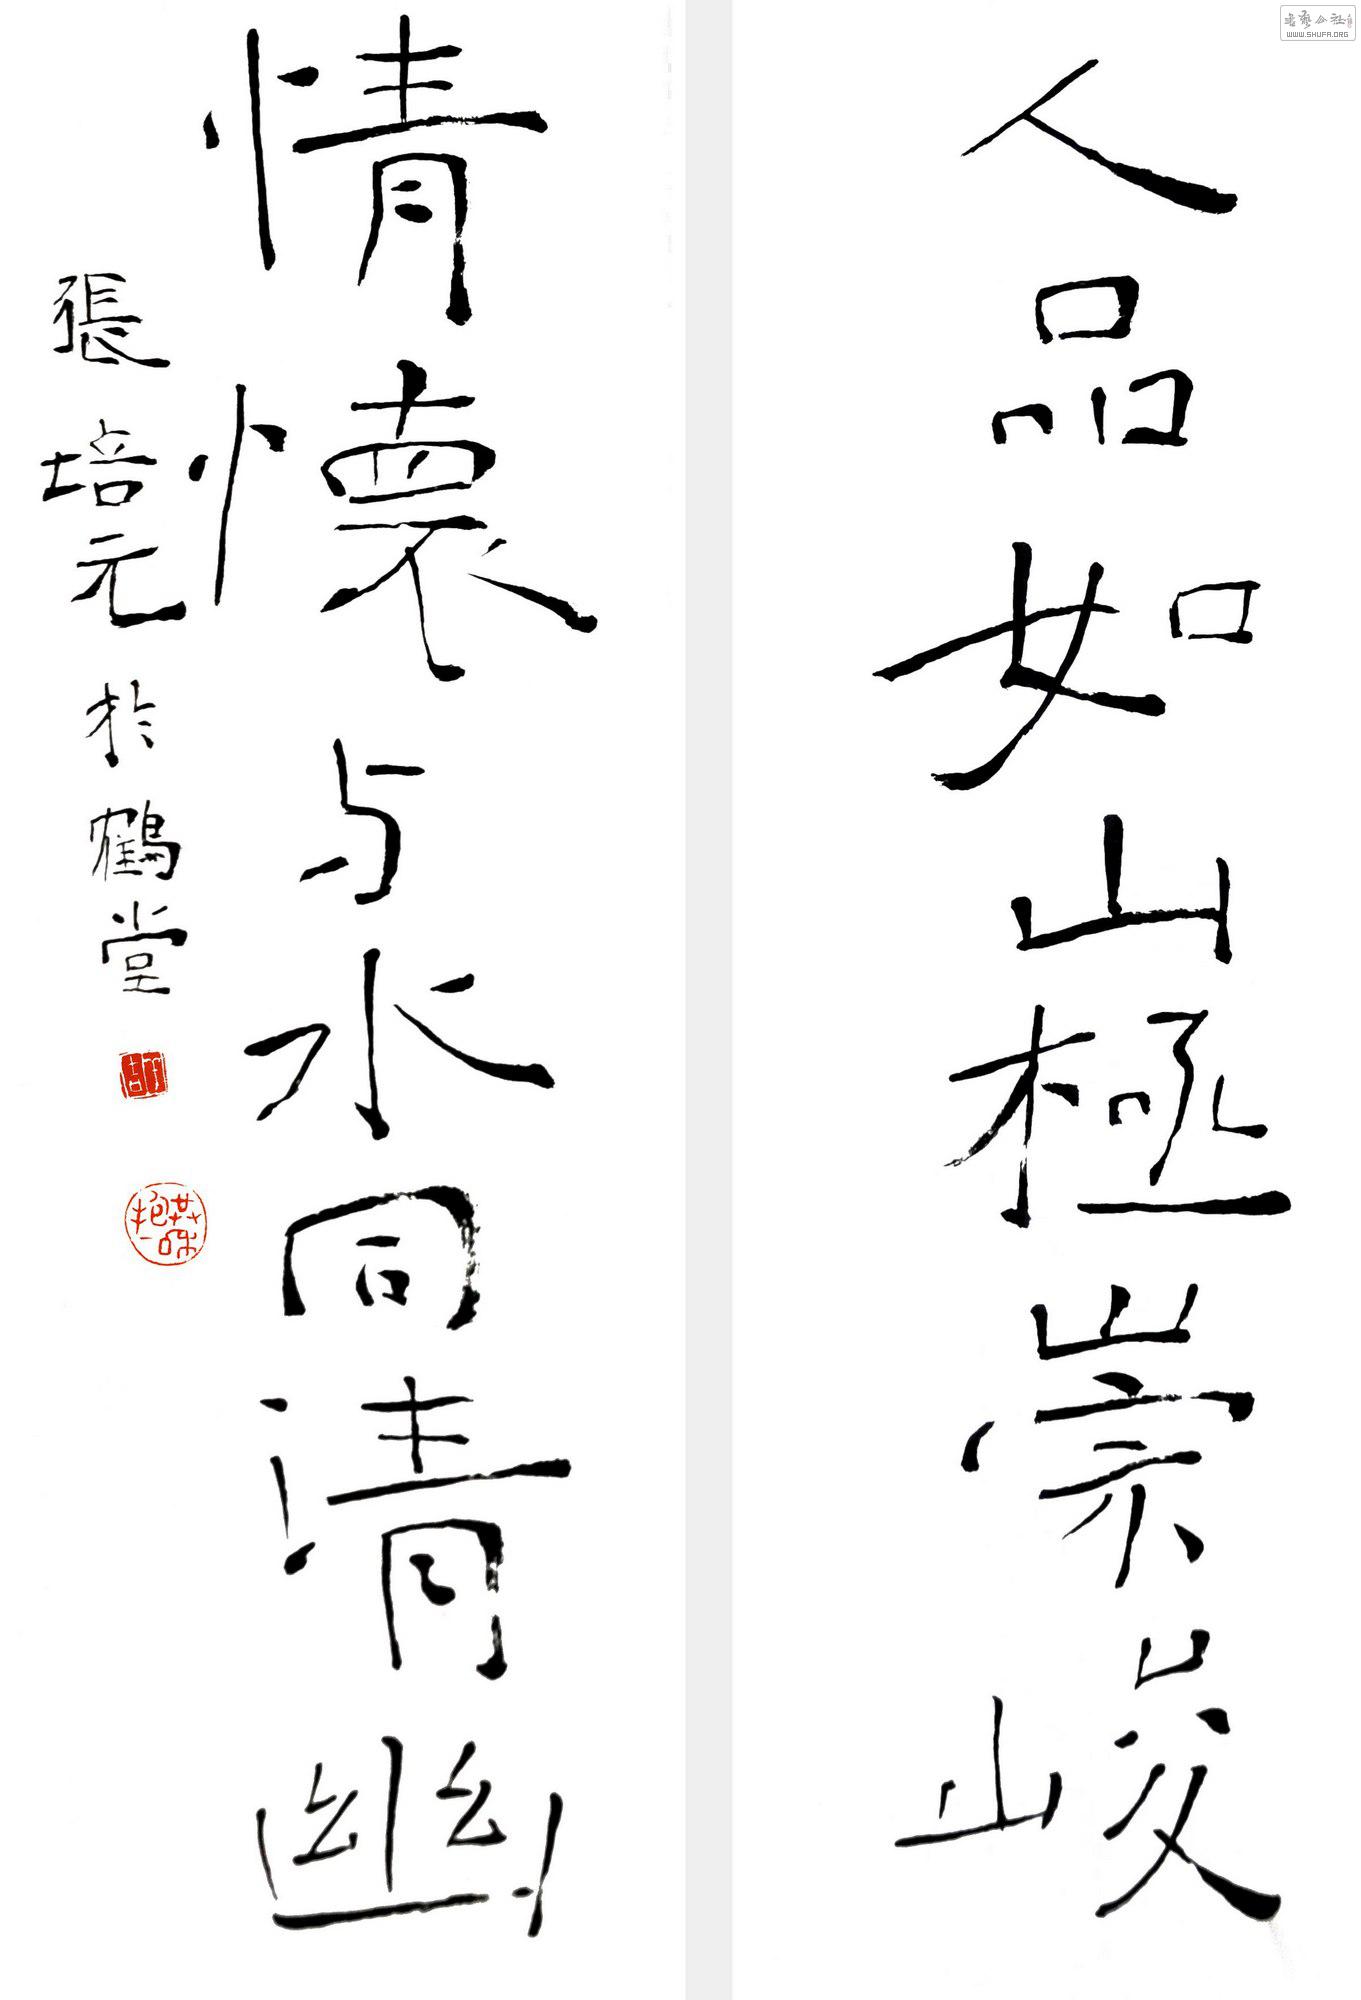 人品如山極崇峻
情懷与水同清幽
張培元於鶴堂
WWW.SHUFA.ORG